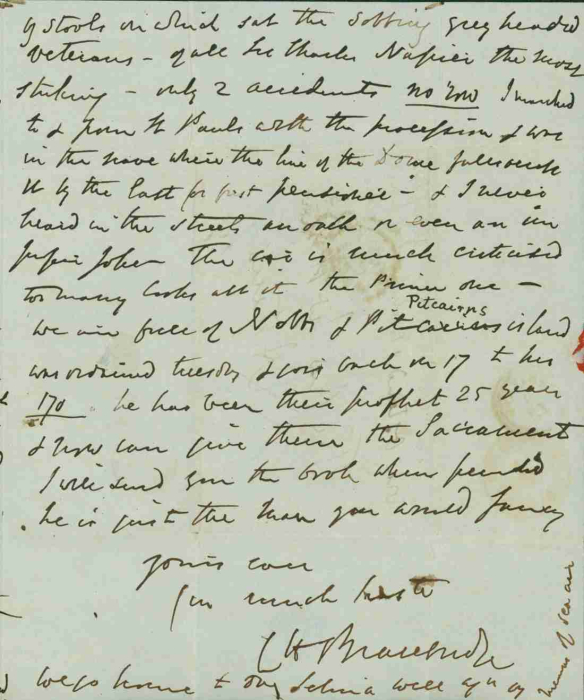 g stools on which sat the sobbing grey headed
veterans – of all Sir Charles Napier the most
striking – only 2 accidents no row I marched
to & from St Pauls with the procession & was
in the nave where the line of the Dome
by the last pensioner – & I never
heard in the streets an oath or even an im
proper joke – The car is much criticised
too many cooks all at the one –
Pitcairns
we are full of Nobbs & Pitcairns island
was ordained tuesday & goes back on 17th to his
170 he has been their prophet 25 years
& now can give them the Sacrament
I will send you the book when
he is just the man you would fancy
yours ever
in much haste
C H Bracebridge
we go home to day Selina well
of sea air